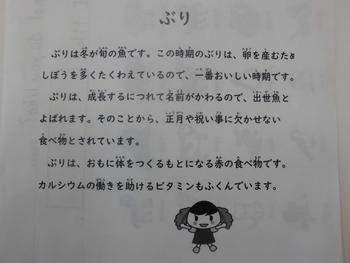 ぶり
ぶりは冬が旬の魚です。この時期のぶりは、卵を産むため
しぼうを多くたくわえているので、一番おいしい時期です。
ぶりは、成長するにつれて名前がかわるので、出世魚と
よばれます。そのことから、正月や祝い事に欠かせない
食べ物とされています。
ぶりは、おもに体をつくるもとになる赤の食べ物です。
カルシウムの働きを助けるビタミンもふくんでいます。